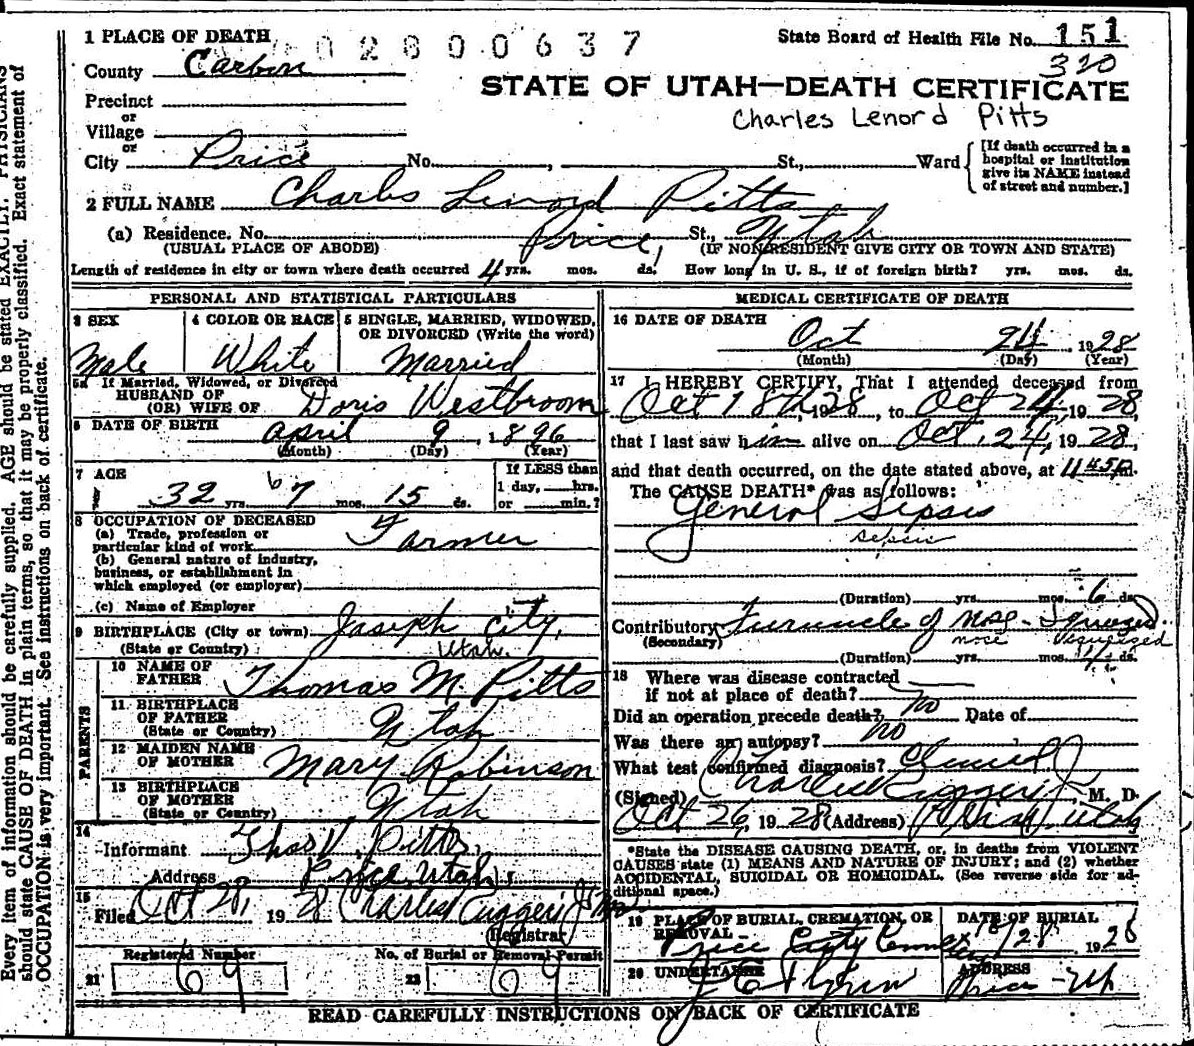 1 PLACE OF DEATH
0 2 8 0 0 6 3 7
State Board of Health File No. 151
320
County Carbon
STATE OF UTAH—DEATH CERTIFICATE
Precinct
or
Village
or
Charles Lenord Pitts
City Price No. , St., Ward
[If death occurred in a hospital or institution give its NAME instead of street and number.]
2 FULL NAME Charles Lenord Pitts
(a) Residence. No. Price, St., Utah
(USUAL PLACE OF ABODE) (IF NONRESIDENT GIVE CITY OR TOWN AND STATE)
Length of residence in city or town where death occurred 4 yrs. mos. ds. How long in U. S., if of foreign birth? yrs. mos. ds.
PERSONAL AND STATISTICAL PARTICULARS
3 SEX
Male
4 COLOR OR RACE
White
5 SINGLE, MARRIED, WIDOWED, OR DIVORCED (Write the word)
Married
5a If Married, Widowed, or Divorced
HUSBAND OF
(OR) WIFE OF Doris Westbroom
6 DATE OF BIRTH April 9, 1896
(Month) (Day) (Year)
7 AGE
32 yrs. 6 7 mos. 15 ds.
If LESS than
1 day, hrs.
or min.?
8 OCCUPATION OF DECEASED
(a) Trade, profession or
particular kind of work Farmer
(b) General nature of industry,
business, or establishment in
which employed (or employer)
(c) Name of Employer
9 BIRTHPLACE (City or town) Joseph City,
(State or Country) Utah.
PARENTS
10 NAME OF
FATHER Thomas M. Pitts
11 BIRTHPLACE
OF FATHER
(State or Country) Utah
12 MAIDEN NAME
OF MOTHER Mary Robinson
13 BIRTHPLACE
OF MOTHER
(State or Country) Utah
14
Informant Thos V. Pitts,
Address Price, Utah
15
Filed Oct 28, 1928 Charles Ruggeri Jr
Registrar
Registered Number
21 69
No. of Burial or Removal Permit
22 69
MEDICAL CERTIFICATE OF DEATH
16 DATE OF DEATH
Oct 24 1928
(Month) (Day) (Year)
17 I HEREBY CERTIFY, That I attended deceased from
Oct 18th, 1928, to Oct 24, 1928,
that I last saw him alive on Oct. 24, 1928,
and that death occurred, on the date stated above, at 11 45 P m.
The CAUSE DEATH* was as follows:
General Sepsis
sepsis
(Duration) yrs. mos. 6 ds.
Contributory Furuncle of nose - Squeezed.
(Secondary) nose squeezed
(Duration) yrs. mos. ds.
18 Where was disease contracted
if not at place of death?
Did an operation precede death? No Date of
Was there an autopsy? No
What test confirmed diagnosis? Clinical
(Signed) Charles Ruggeri Jr, M. D.
Oct 26, 1928 (Address) Price, Utah
*State the DISEASE CAUSING DEATH, or, in deaths from VIOLENT
CAUSES state (1) MEANS AND NATURE OF INJURY; and (2) whether
ACCIDENTAL, SUICIDAL OR HOMICIDAL. (See reverse side for ad-
ditional space.)
19 PLACE OF BURIAL, CREMATION, OR
REMOVAL —
Price City Cemetery
DATE OF BURIAL
10/28 1928
20 UNDERTAKER
J E Flynn
ADDRESS
Price - Ut
READ CAREFULLY INSTRUCTIONS ON BACK OF CERTIFICATE
Every item of information should be carefully supplied. AGE should be stated EXACTLY. PHYSICIANS
should state CAUSE OF DEATH in plain terms, so that it may be properly classified. Exact statement of
OCCUPATION is very important. See instructions on back of certificate.